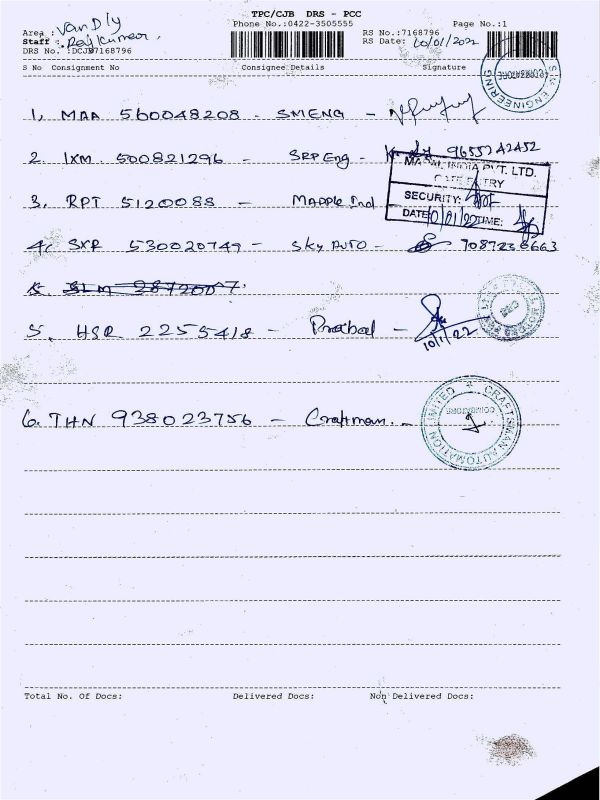 TPC/CJB DRS - PCC
Phone No.:0422-3505555 Page No.:1
Area : Van Dly
Staff : Rajkumar,
DRS No. :DCJB7168796
RS No.:7168796
RS Date: 10/01/2022
S No Consignment No Consignee Details Signature
1, MAA 560048208 - SMENG -
2. IXM 500821296 - SRP Eng - 9655242452
MAPAL INDIA PVT. LTD.
GATE ENTRY
SECURITY:
DATE 10/01/22 TIME:
3, RPT 5120088 - Mapple Ind
4, SXR 530020749 - Sky AUTO - 7087236663
5. SLM 9872007.
5. HSR 2255418 - Prabal -
10/1/22
6. THN 938023756 - Craftman. -
CRAFTSMAN AUTOMATION LIMITED
COIMBATORE
S.M. ENGINEERING
COIMBATORE
Total No. Of Docs: Delivered Docs: Non Delivered Docs: